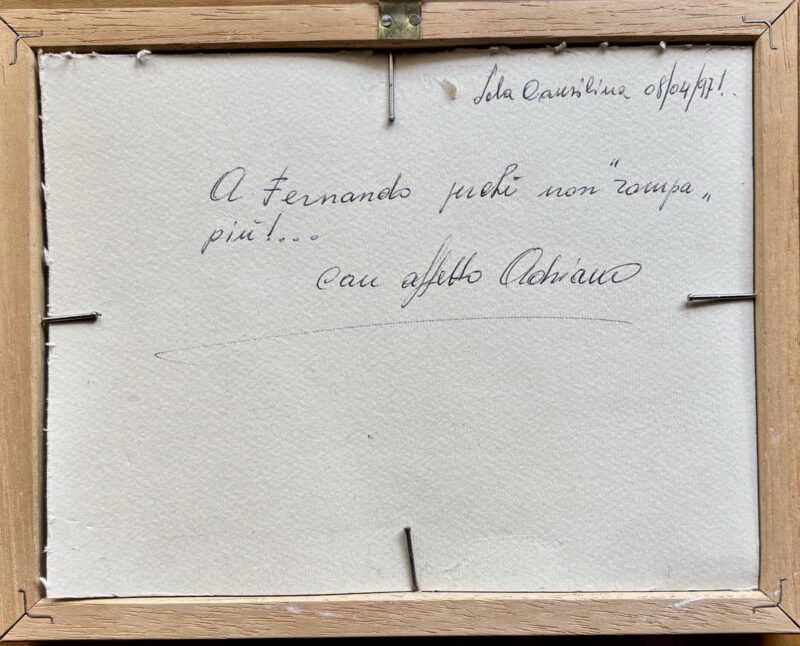 Sala Consilina 08/04/97!.
A Fernando perchè non "rompa"
più!...
con affetto Adriano